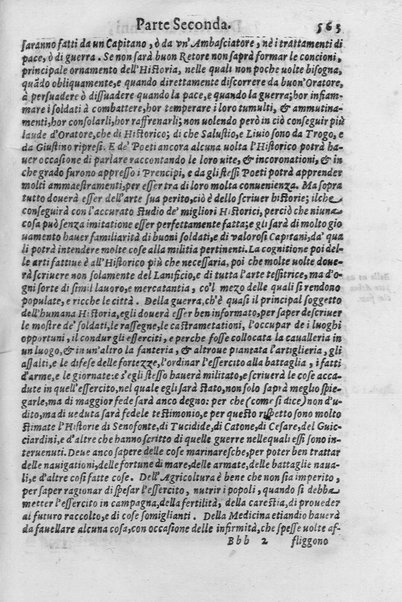 Parte Seconda. 563
saranno fatti da un Capitano, ò da vn' Ambasciatore, nè i trattamenti di
pace, ò di guerra. Se non sarà buon Retore non saprà formar le concioni,
principale ornamento dell'Historia, nelle quali non poche uolte bisogna,
quãdo obliquamente, e quando direttamente discorrere da buon'Oratore,
à persuadere ò dissuadere quando la pace, e quando la guerra; hor infiam-
mare i soldati à combattere, hor temperare i loro tumulti, & ammutina-
menti, hor consolarli, hor raffrenarli; non uolendo però in ciò conseguir più
laude d'Oratore, che di Historico; di che Salustio, e Liuio sono da Trogo, e
da Giustino ripresi. E de' Poeti ancora alcuna uolta l'Historico potrà ha-
uer occasione di parlare raccontando le loro uite, & incoronationi, & in
che grado furono appresso i Prencipi, e da gli stessi Poeti potrà apprender
molti ammaestramenti, per esser tra di loro molta conuenienza. Ma sopra
tutto douerà esser dell'arte sua perito, ciò è dello scriuer historie; ilche
conseguirà con l'accurato studio de' migliori Historici, perciò che niuna
cosa può senza imitatione esser perfettamente fatta; e gli sarà di molto gio
uamento hauer familiarità di buoni soldati, e di valorosi Capitani, da' qua
li potrà intendere molte cose alla militia pertinenti. La cognitione poi del-
le arti fattiue è all'Historico più che necessaria, poi che molte uolte doue-
rà scriuere non solamente del Lanificio, e di tutta l'arte tessitrice, ma d'o-
gni sorte di simil lauoro, e mercatantia, co'l mezo delle quali si rendono
populate, e ricche le città. Della guerra, ch'è quasi il principal soggetto
dell'humana Historia, egli douerà esser ben informato, per saper descriuer
le mostre de' soldati, le rassegne, le castrametationi, l'occupar de i luoghi
opportuni, il condur gli esserciti, e perche fosse collocata la caualleria in
un luogo, & in un'altro la fanteria, & altroue piantata l'artiglieria, gli
assalti, e le difese delle fortezze, l'ordinar l'essercito alla battaglia, i fatti
d'arme, e le giornate; e s'egli stesso hauerà militato, e scriuerà le cose acca-
dute in quell'essercito, nel quale egli sarà stato, non solo saprà meglio spie-
garle, ma di maggior fede sarà anco degno: per che (come si dice) non d'u-
dito, ma di ueduta sarà fedele testimonio, e per questo rispetto sono molto
stimate l'Historie di Senofonte, di Tucidide, di Catone, di Cesare, del Guic-
ciardini, e d'altre che hanno scritto di quelle guerre nelle quali essi sono in-
teruenuti. Deue anco sapere delle cose marinaresche, per poter ben trattar
delle nauigationi, delle fortune di mare, delle armate, delle battaglie naua-
li, e d'altre cosi fatte cose. Dell'Agricoltura è bene che non sia imperito,
per saper ragionar di spesar l'essercito, nutrir i popoli, quando si debba
metter l'essercito in campagna, della fertilità, della carestia, di proueder
al futuro raccolto, e di cose somiglianti. Della Medicina etiandio hauerà
da fauellare alcuna cosa, con occasione delle infirmità, che spesse uolte af-
Bbb 2 fliggono